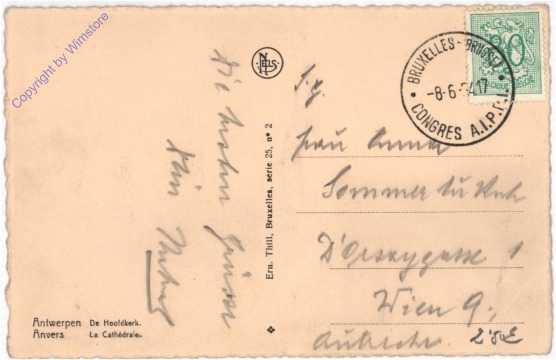 Copyright by Wimstore
Die besten Grüsse
Dein
NELS
Ern. Thill, Bruxelles, série 25, nº 2
BRUXELLES - BRUSSEL
-8-6-54 17
CONGRES A.I.P.
BELGIQUE
S. g.
Frau Anna
Sommer
D'Orsaygasse 1
Wien 9,
Antwerpen De Hoofdkerk.
Anvers La Cathédrale.